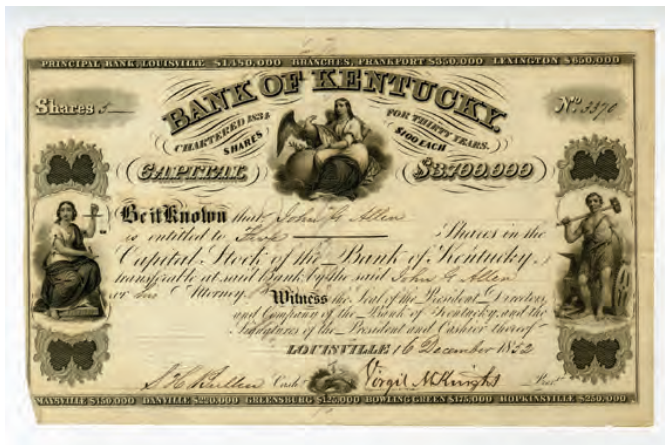 PRINCIPAL BANK, LOUISVILLE $1,480,000 BRANCHES, FRANKFORT $350,000 LEXINGTON $650,000
Shares 5
No. 3370
BANK OF KENTUCKY.
CHARTERED 1834 FOR THIRTY YEARS.
SHARES $100 EACH
CAPITAL $3,700,000
Be it Known that John G Allen
is entitled to Five Shares in the
Capital Stock of the Bank of Kentucky
transferable at said Bank by the said John G Allen
or his Attorney. Witness the Seal of the President, Directors,
and Company of the Bank of Kentucky, and the
Signatures of the President and Cashier thereof
LOUISVILLE 16 December 1852
Cashr. Virgil McKnight Prest.
MAYSVILLE $150,000 DANVILLE $220,000 GREENSBURG $125,000 BOWLING GREEN $175,000 HOPKINSVILLE $250,000